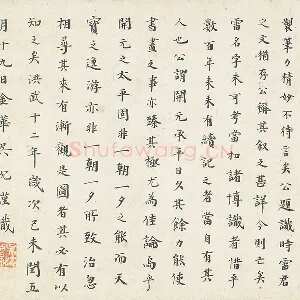 製筆力精妙不待言矣公題識時雷君
之文猶存公稱其敘之甚詳今則亡矣
雷名字未可考當和諸博識者惜乎
數百年未未有讀記之者當自有其
人也公謂開元承平日久其餘力能使
書畫之事亦臻其極尤為佳論烏乎
開元之太平固非一朝一夕之能而天
寶之逸游亦非一朝一夕所致治忽
相尋其來有漸觀是圖者其必有以
知之矣洪武十二年歲次己未閏五
月十九日金華吳沉謹識